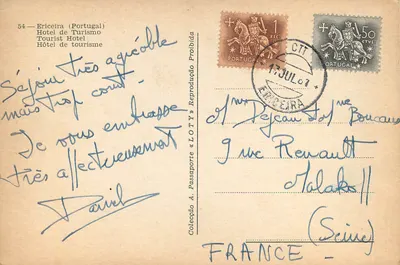 54 — Ericeira (Portugal)
Hotel de Turismo
Tourist Hotel
Hôtel de tourisme
Séjour très agréable
mais trop court.
Je vous embrasse
très affectueusement
Colecção A. Passaporte «LOTY» Reprodução Proibida
1
PORTUGAL
$50
CTT
17 JUL 61
ERICEIRA
9 rue Renault
Malakoff
(Seine)
FRANCE